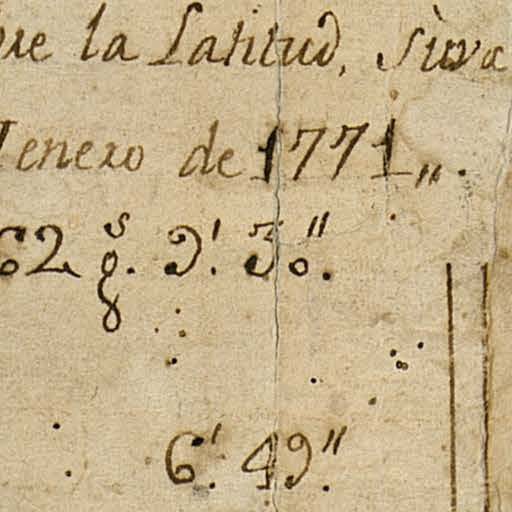 la Latitud, sirva
enero de 1771,,.
62 gs. 9'. 30''.
6'. 49''.